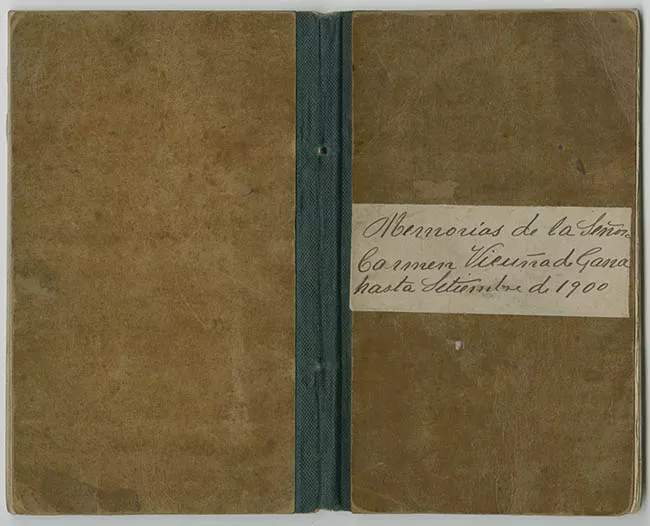 Memorias de la Señora
Carmen Vicuña de Gana
hasta Setiembre de 1900